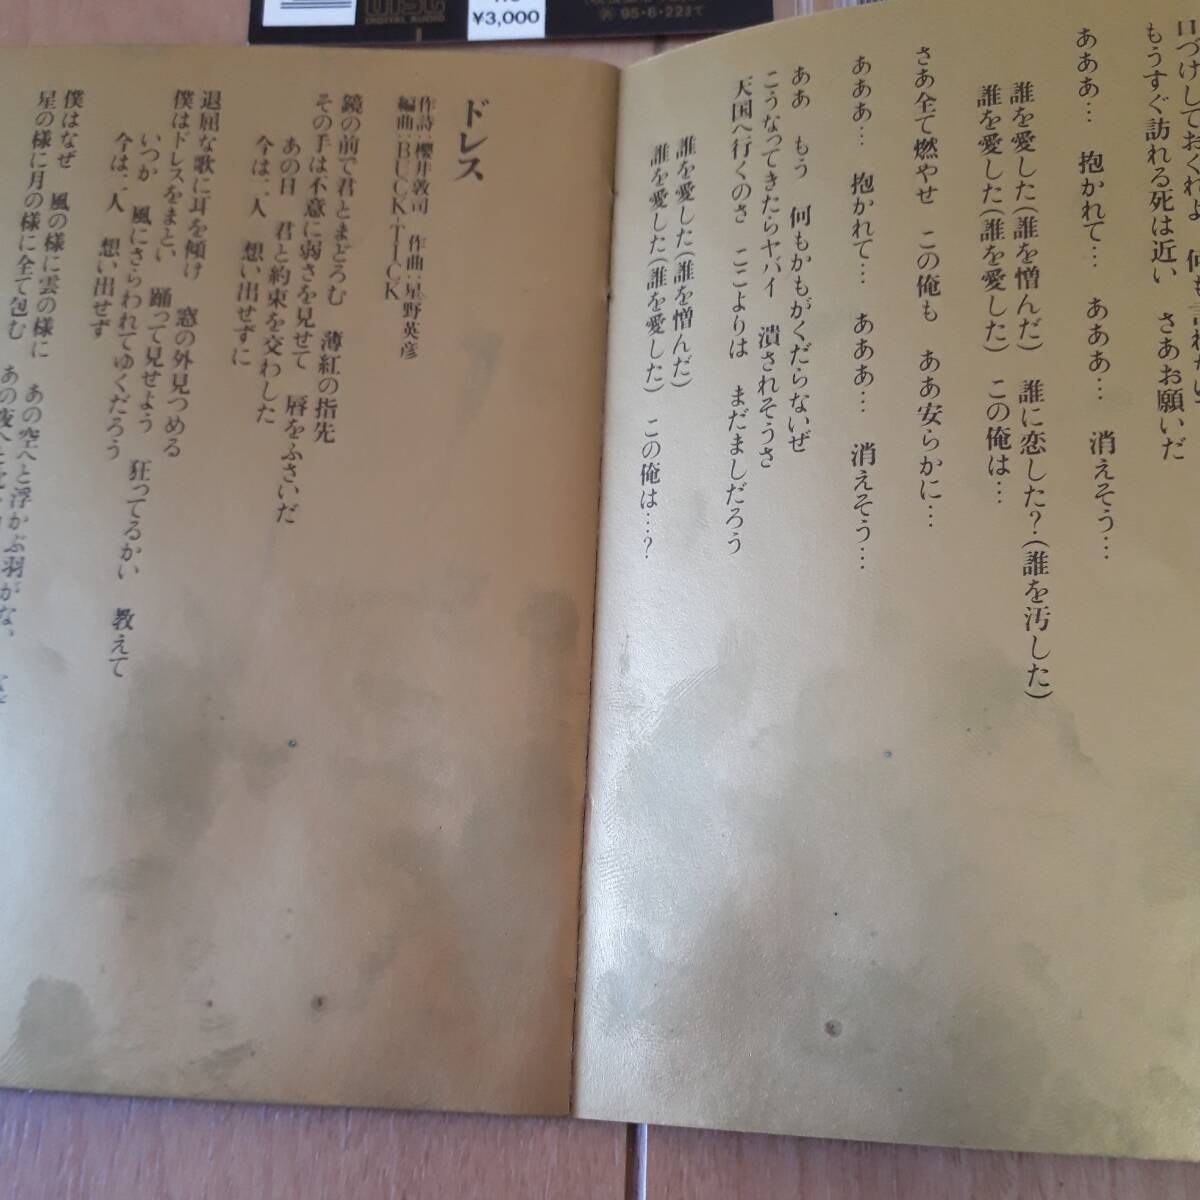 DISC
DIGITAL AUDIO
¥3,000
95・6・22まで
口づけしておくれよ 何も言わないで
もうすぐ訪れる死は近い さあお願いだ
あああ… 抱かれて… あああ… 消えそう…
誰を愛した(誰を憎んだ) 誰に恋した?(誰を汚した)
誰を愛した(誰を愛した) この俺は…
さあ全て燃やせ この俺も ああ安らかに…
あああ… 抱かれて… あああ… 消えそう…
ああ もう 何もかもがくだらないぜ
こうなってきたらヤバイ 潰されそうさ
天国へ行くのさ ここよりは まだましだろう
誰を愛した(誰を憎んだ)
誰を愛した(誰を愛した) この俺は…?
ドレス
作詩:櫻井敦司 作曲:星野英彦
編曲:BUCK-TICK
鏡の前で君とまどろむ 薄紅の指先
その手は不意に弱さを見せて 唇をふさいだ
あの日 君と約束を交わした
今は二人 想い出せずに
退屈な歌に耳を傾け 窓の外見つめる
僕はドレスをまとい 踊って見せよう 狂ってるかい 教えて
いつか 風にさらわれてゆくだろう
今は一人 想い出せず
僕はなぜ 風の様に雲の様に あの空へと浮かぶ羽がない
星の様に月の様に全て包む あの夜へと